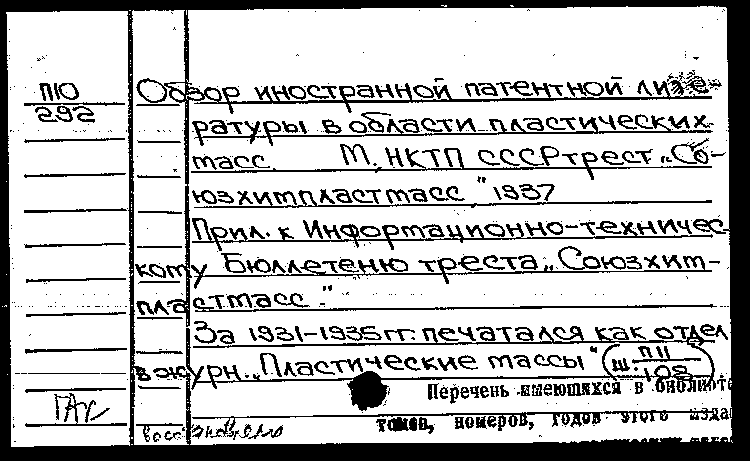 П10
292
Обзор иностранной патентной лите-
ратуры в области пластических
масс. М, НКТП СССР трест „Со-
юзхимпластмасс", 1937
Прил. к Информационно-техничес
кому Бюллетеню треста „Союзхим-
пластмасс".
За 1931-1935 гг. печатался как отдел
в журн. „Пластические массы" (ш. П11
108)
Перечень имеющихся в библиоте
томов, номеров, годов этого изда
восстановлено